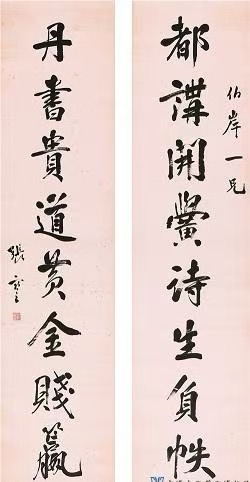 伯岸一兄
都講開黌詩生負帙
丹書貴道黃金賤籯
張謇